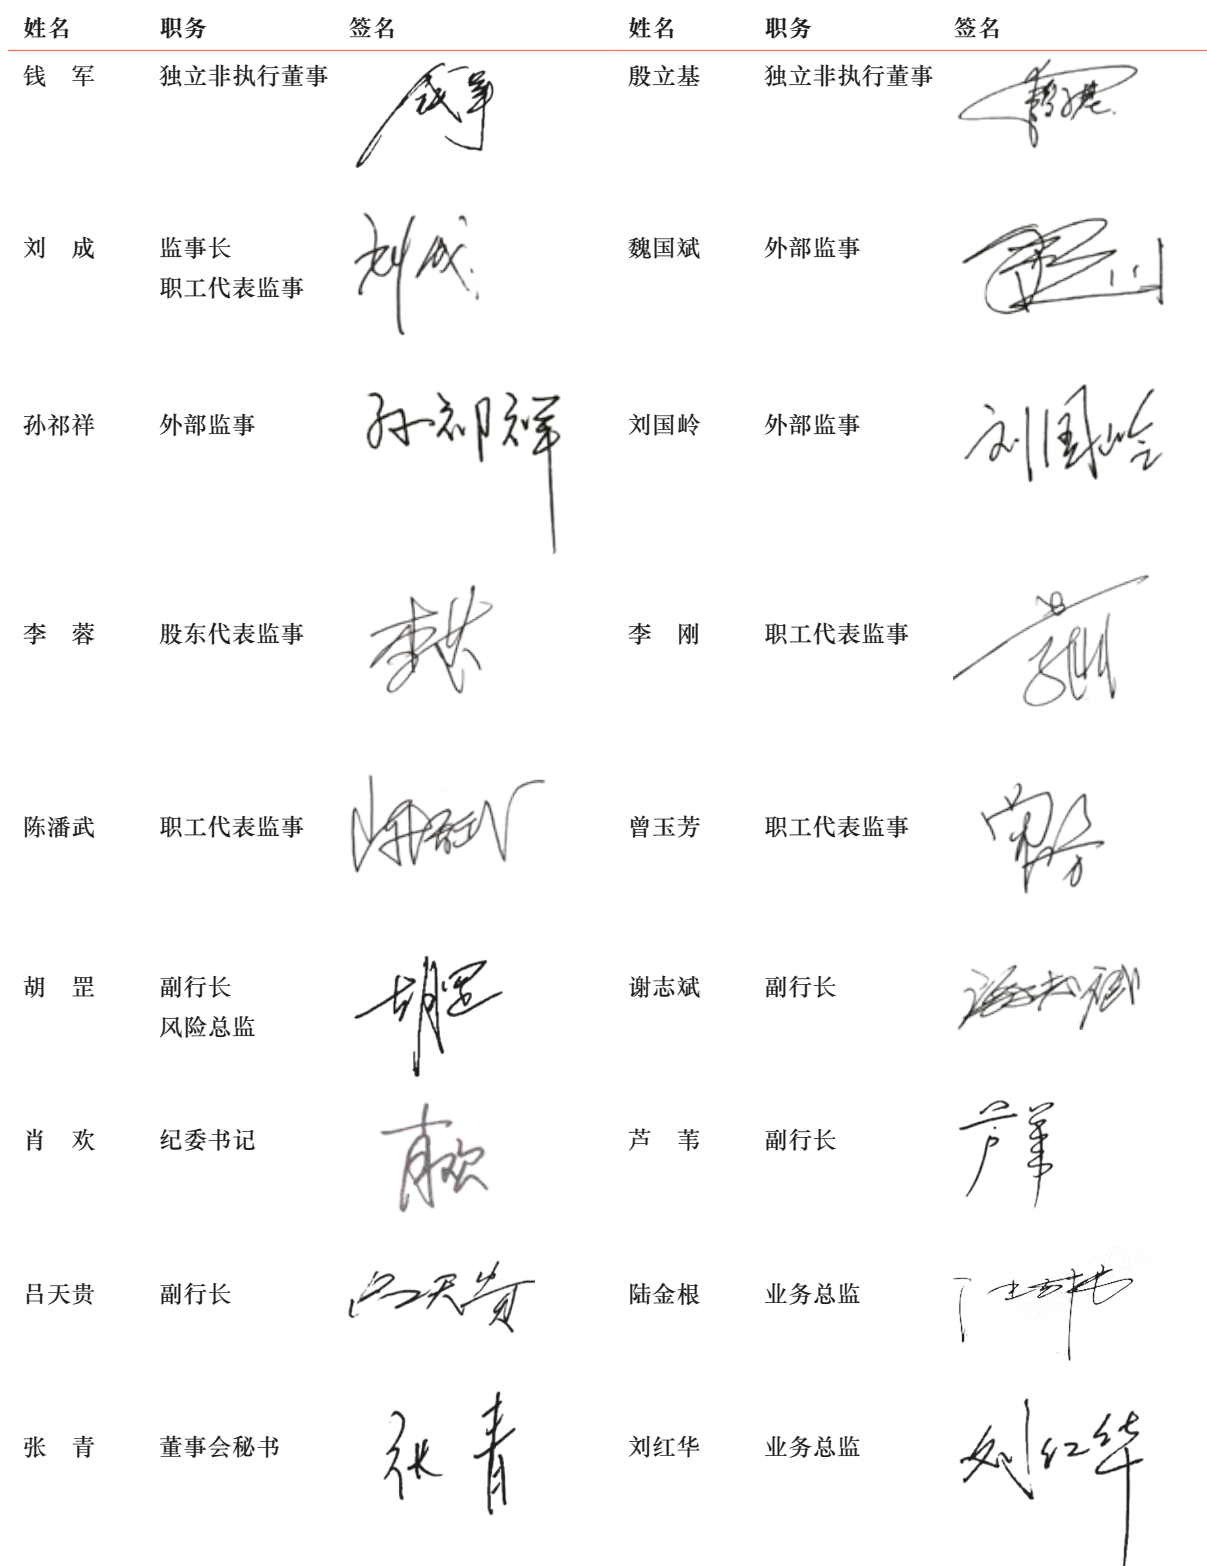 姓名 职务 签名 姓名 职务 签名
钱 军 独立非执行董事 钱军 殷立基 独立非执行董事
刘 成 监事长 刘成 魏国斌 外部监事
职工代表监事
孙祁祥 外部监事 孙祁祥 刘国岭 外部监事 刘国岭
李 蓉 股东代表监事 李 刚 职工代表监事
陈潘武 职工代表监事 曾玉芳 职工代表监事
胡 罡 副行长 胡罡 谢志斌 副行长
风险总监
肖 欢 纪委书记 肖欢 芦 苇 副行长 芦苇
吕天贵 副行长 吕天贵 陆金根 业务总监
张 青 董事会秘书 张青 刘红华 业务总监 刘红华